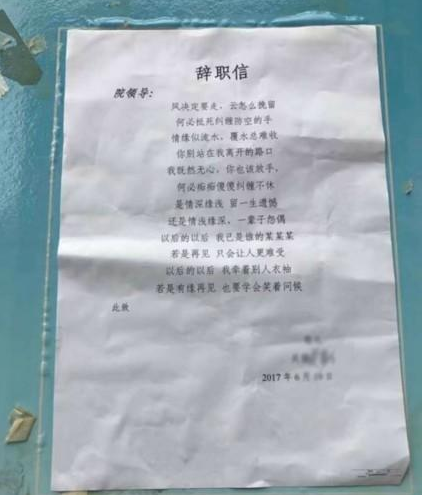 辞职信
院领导：
风决定要走，云怎么挽留
何必抵死纠缠放空的手
情缘似流水，覆水总难收
你别站在我离开的路口
我既然无心，你也该放手，
何必痴痴傻傻纠缠不休
是情深缘浅 留一生遗憾
还是情浅缘深，一辈子怨偶
以后的以后 我已是谁的某某某
若是再见 只会让人更难受
以后的以后 我牵着别人衣袖
若是有缘再见 也要学会笑着问候
此致
2017 年 6 月